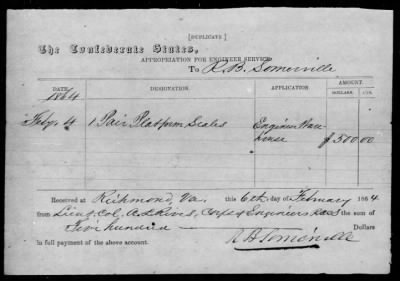 [DUPLICATE]
The Confederate States,
APPROPRIATION FOR ENGINEER SERVICE
To R. B. Somerville
DATE. DESIGNATION. APPLICATION. AMOUNT
DOLLARS. CTS.
1864
Feby. 4 1 Pair Platform Scales Engineer Ware
house $500 00
Received at Richmond, Va. this 6th day of February 1864
from Lieut. Col. A L Rives, Corps of Engineers
Five hundred Dollars
in full payment of the above account.
R B Somerville